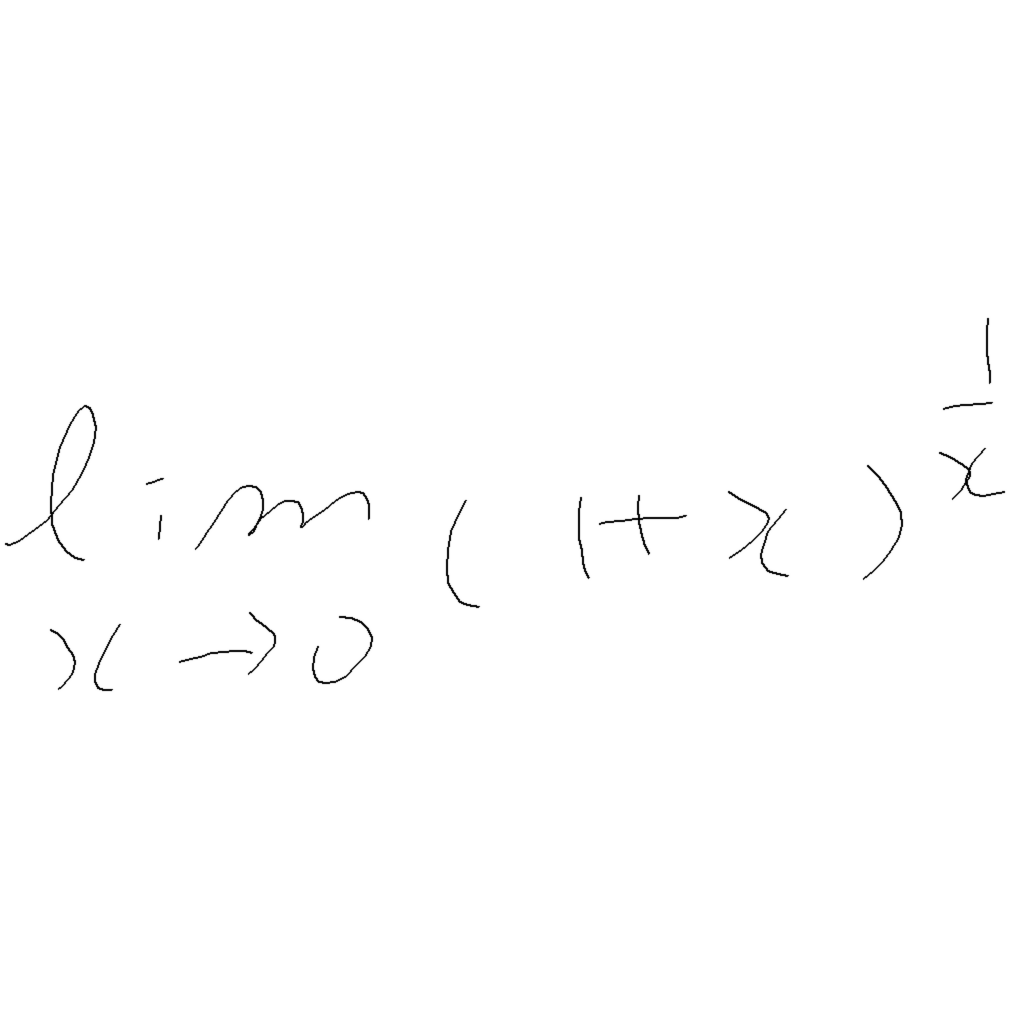 \lim_{x \to 0} (1+x)^{\frac{1}{x}}